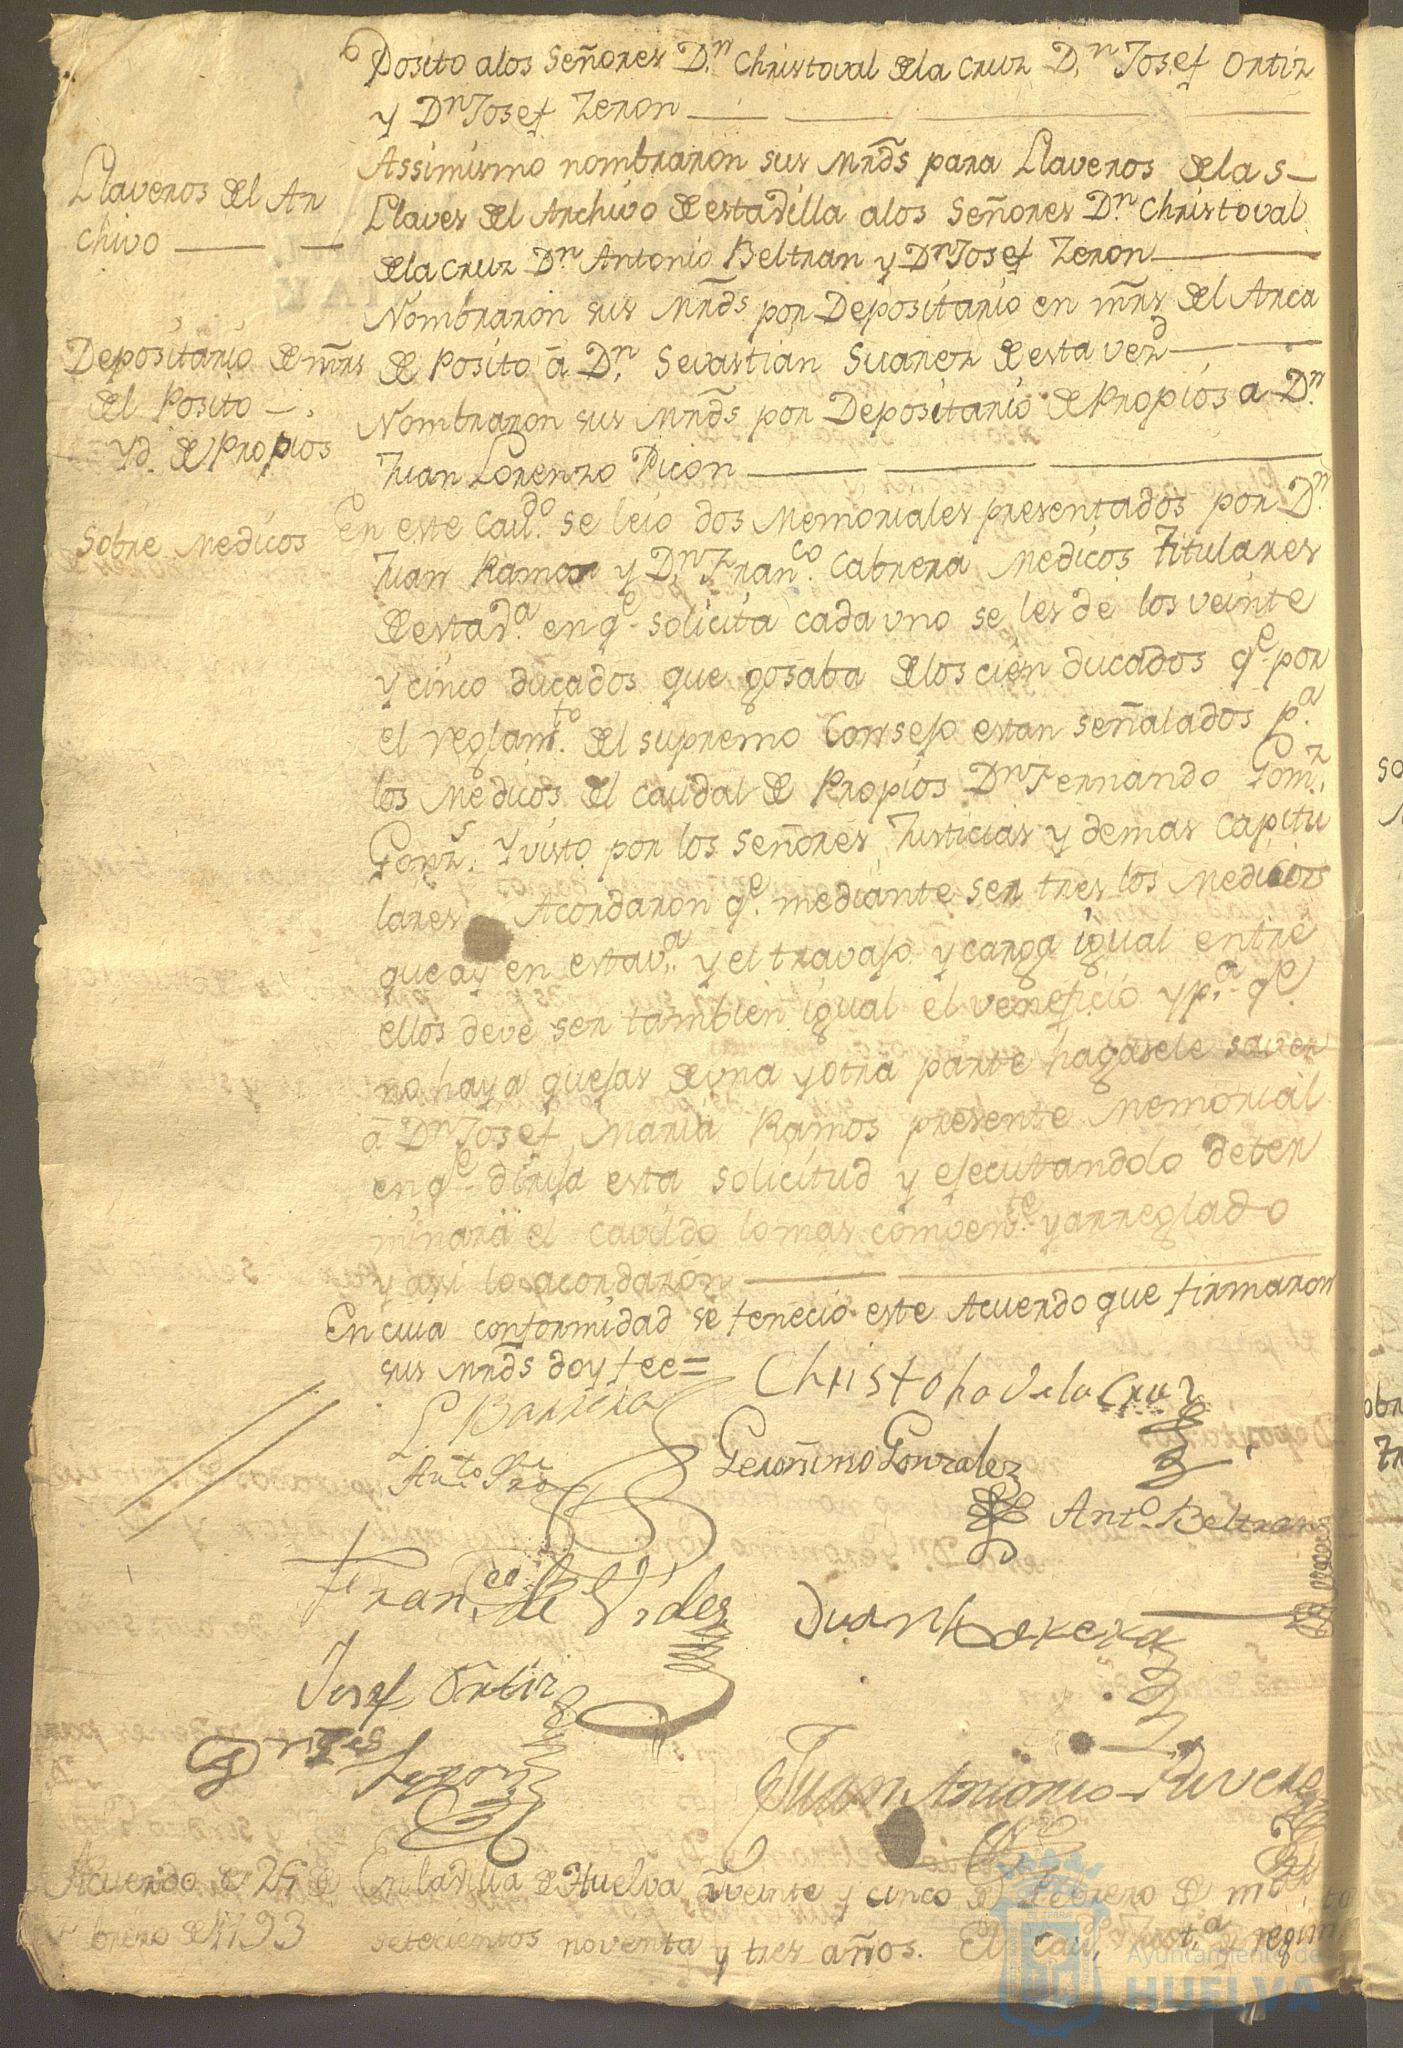 Posito alos Señores Dn. Christoval dela Cruz Dn. Josef Ortiz
y Dn Josef Zeron
Assimismo nombraron sus Mrds para Llaveros delas
Llaveros del Ar
chivo
Llaves del Archivo de estavilla alos Señores Dn. Christoval
dela Cruz Dn. Antonio Beltran y Dn Josef Zeron
Nombraron sus Mrds por Depositario en mrs del Arca
Depositario de mrs
del Posito
Yd. de Propios
de Posito â Dn. Sevastian Suarez de esta vezd
Nombraron sus Mrds por Depositario de Propios a Dn.
Juan Lorenzo Picon
Sobre Medicos
En este Cavdo. se leio dos Memoriales presentados por Dn.
Juan Ramos y Dn. Franco. Cabrera Medicos Titulares
de esta va. en qe. solicita cada uno se les de los veinte
y cinco ducados que gosaba delos cien ducados qe. por
el reglamto. del supremo Consejo estan señalados pa.
los Medicos del caudal de Propios Dn Fernando Gomz.
Gonzs. Y visto por los Señores Justicias y demas Capitu
lares Acordaron qe. mediante ser tres los Medicos
que ay en esta va. y el travajo y carga igual entre
ellos deve ser tambien igual el veneficio y pa. qe.
no haya quejas de una y otra parte hagasele saver
â Dn Josef Maria Ramos presente Memorial
en qe. dirija esta solicitud y ejecutandolo deter
minarà el cavildo lo mas convente. y arreglado
y asi lo acordaron
En cuia conformidad se feneció este Acuerdo que firmaron
sus Mrds doy fee=
Christoval de la Cruz
L. Barrera
Geronimo Gonzalez
Anto. Beltran
Franco. de Vides
Josef Ortiz
Juan Antonio Rivero
Acuerdo de 25 de
brero de 1793
En la Villa de Huelva â veinte y cinco de Febrero de mil
setecientos noventa y tres años. El Cavdo. Justa. y regim
Ayuntamiento de
HUELVA